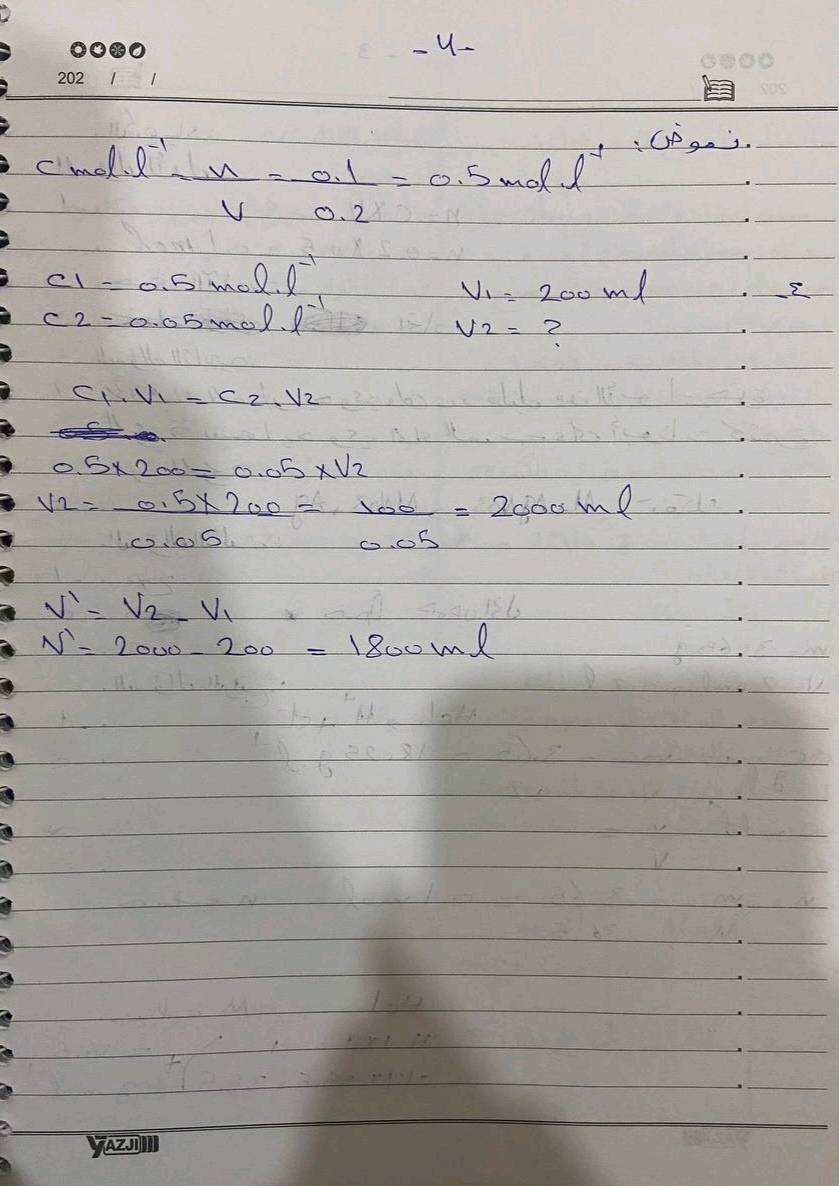 -4-
202 / /
نعوض:
C mol.l⁻¹ = n/V = 0.1/0.2 = 0.5 mol.l⁻¹
C1 = 0.5 mol.l⁻¹ V1 = 200 ml -٤
C2 = 0.05 mol.l⁻¹ V2 = ?
C1.V1 = C2.V2
0.5 × 200 = 0.05 × V2
V2 = 0.5 × 200/0.05 = 100/0.05 = 2000 ml
V' = V2 - V1
V' = 2000 - 200 = 1800 ml
YAZJI